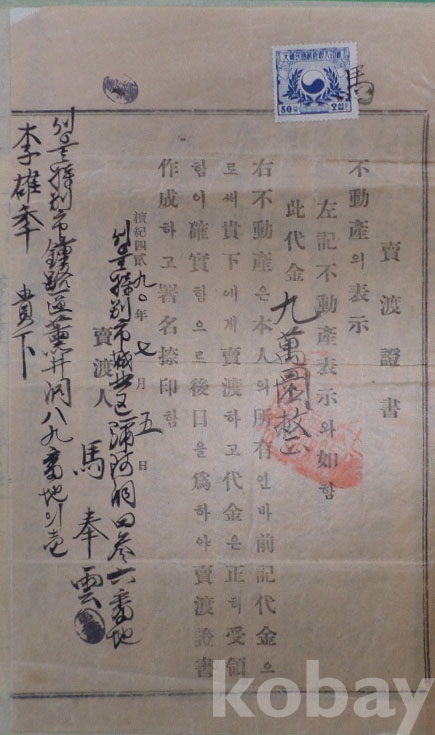 賣渡證書
不動產의表示
左記不動產表示와如함
此代金 九萬圜整
右不動產은本人의所有인바前記代金으
로써貴下에게賣渡하고代金은正히受領
함이確實함으로後日을爲하야賣渡證書
作成하고署名捺印함
檀紀四貳九〇年七月五日
서울特別市城北區彌阿洞四參六番地
賣渡人 馬奉雲
서울特別市鍾路區黃井洞八九番地의壱
李雄奉 貴下
馬
50 오십
kobay